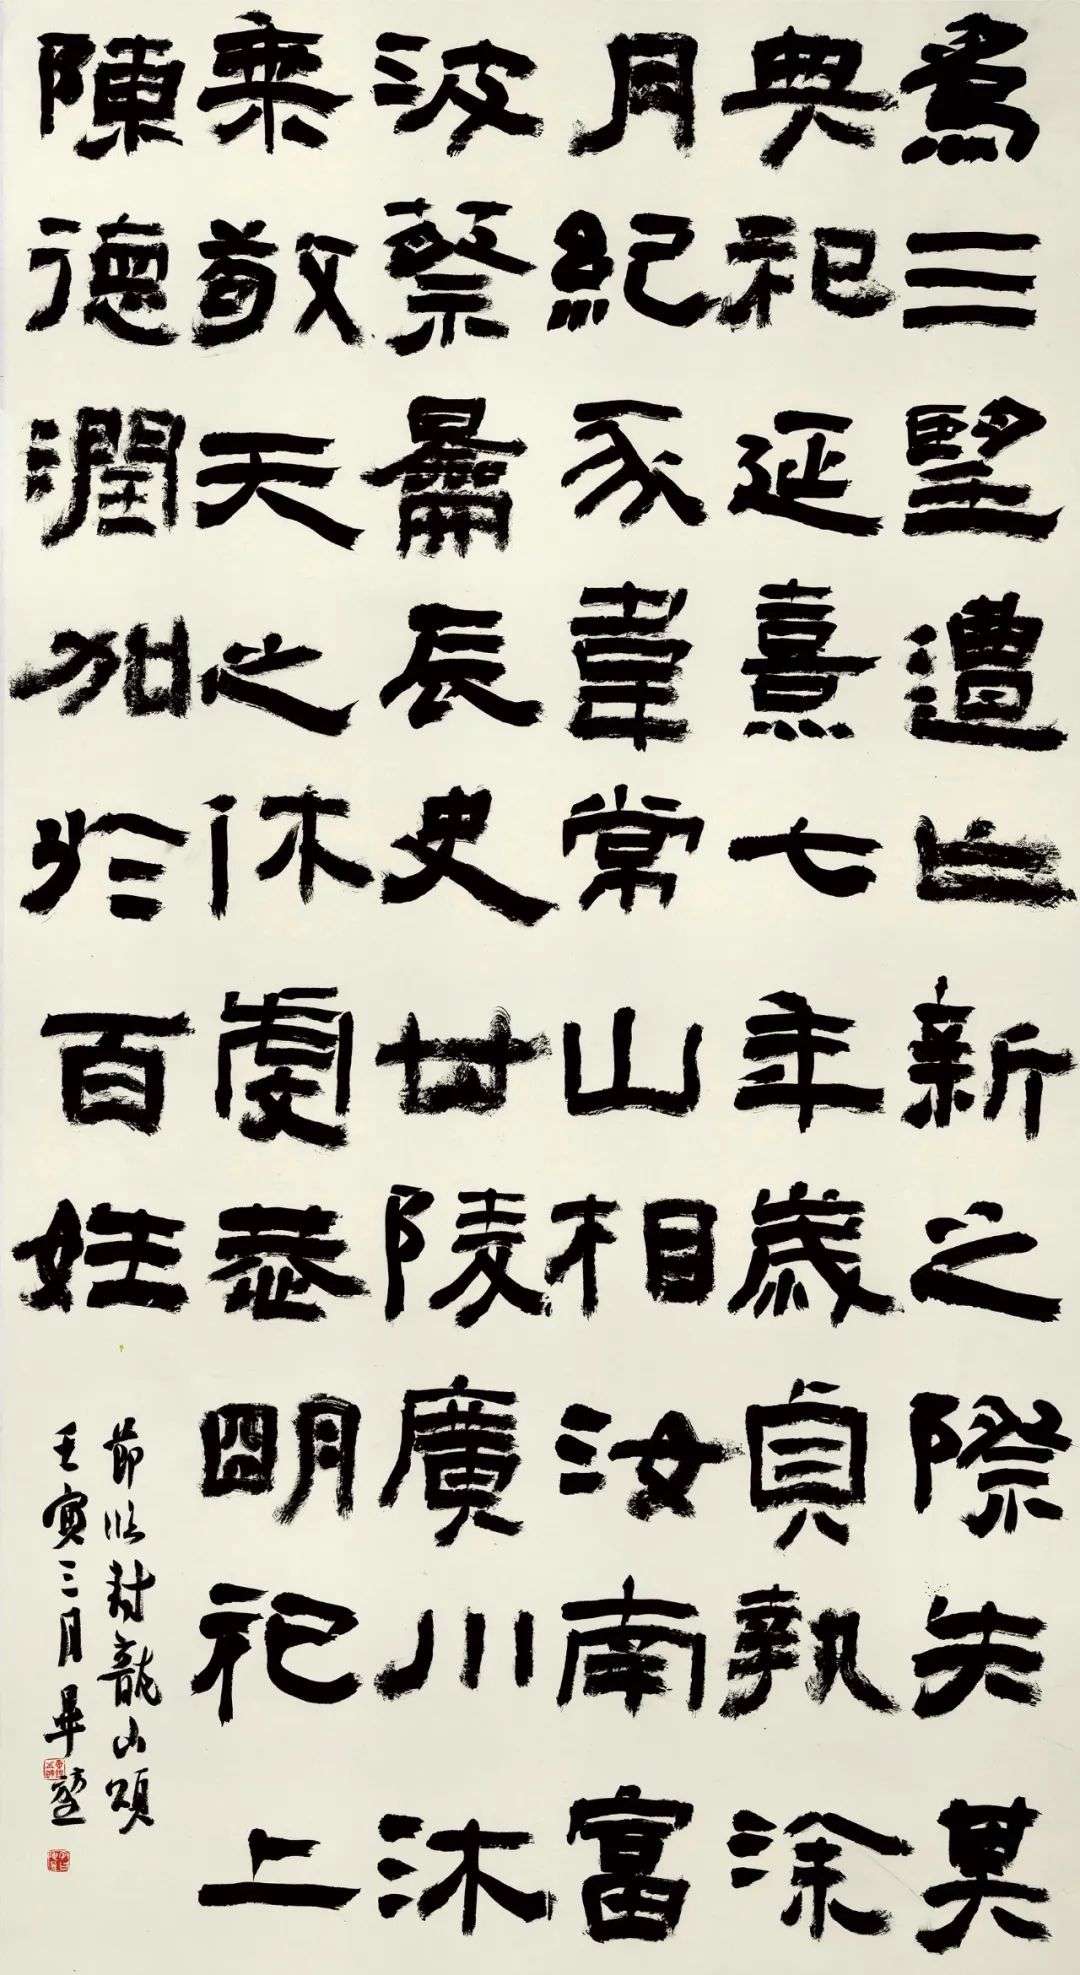 為三望遭亡新之際失其
典祀延熹七年歲貞執涂
月紀豕韋常山相汝南富
波蔡長史甘陵廣川沐
乘敬天之休虔恭明祀上
陳德潤加於百姓
節臨封龍山頌
壬寅三月畢